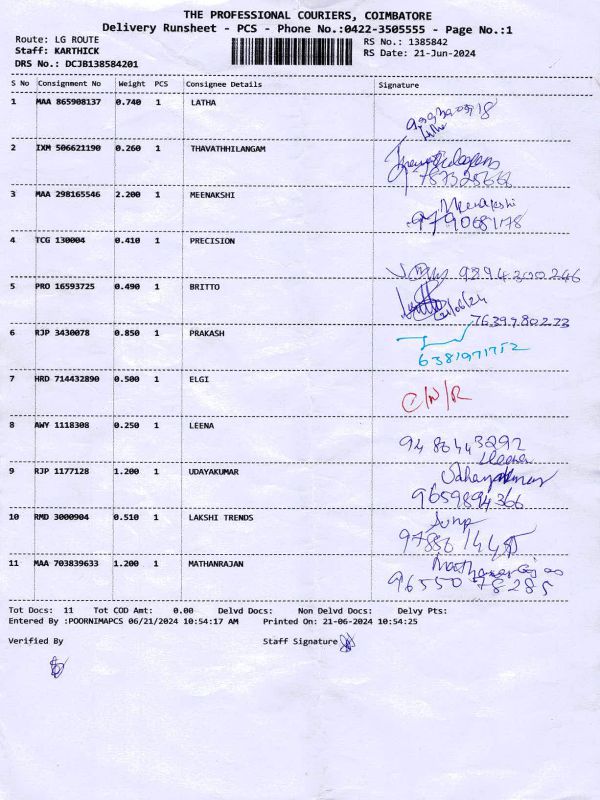 THE PROFESSIONAL COURIERS, COIMBATORE
Delivery Runsheet - PCS - Phone No.:0422-3505555 - Page No.:1
Route: LG ROUTE RS No.: 1385842
Staff: KARTHICK RS Date: 21-Jun-2024
DRS No.: DCJB138584201
S No Consignment No Weight PCS Consignee Details Signature
1 MAA 865908137 0.740 1 LATHA
Latha
2 IXM 506621190 0.260 1 THAVATHHILANGAM
3 MAA 298165546 2.200 1 MEENAKSHI Meenakshi
9790681178
4 TCG 130004 0.410 1 PRECISION
9894300246
5 PRO 16593725 0.490 1 BRITTO
21/06/24
7639980233
6 RJP 3430078 0.850 1 PRAKASH
6381971752
7 HRD 714432890 0.500 1 ELGI
C/N/R
8 AWY 1118308 0.250 1 LEENA
9486443292
Leena
9 RJP 1177128 1.200 1 UDAYAKUMAR
9659894366
10 RMD 3000904 0.510 1 LAKSHI TRENDS
11 MAA 703839633 1.200 1 MATHANRAJAN
96550 78285
Tot Docs: 11 Tot COD Amt: 0.00 Delvd Docs: Non Delvd Docs: Delvy Pts:
Entered By :POORNIMAPCS 06/21/2024 10:54:17 AM Printed On: 21-06-2024 10:54:25
Verified By Staff Signature